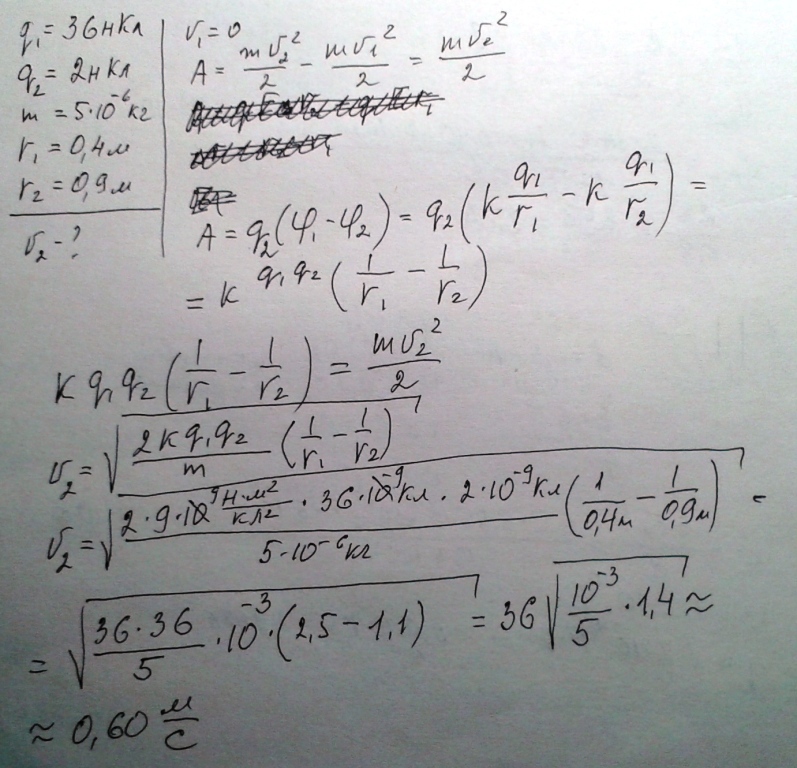 q₁ = 36нКл
q₂ = 2нКл
m = 5·10⁻⁶кг
r₁ = 0,4м
r₂ = 0,9м
v₂ - ?
v₁ = 0
A = mv₂²/2 - mv₁²/2 = mv₂²/2
A = q₂(φ₁ - φ₂) = q₂(k q₁/r₁ - k q₁/r₂) =
= k q₁q₂ (1/r₁ - 1/r₂)
k q₁q₂ (1/r₁ - 1/r₂) = mv₂²/2
v₂ = √(2kq₁q₂/m (1/r₁ - 1/r₂))
v₂ = √(2·9·10⁹ Н·м²/Кл² · 36·10⁻⁹Кл · 2·10⁻⁹Кл / 5·10⁻⁶кг (1/0,4м - 1/0,9м)) =
= √(36·36/5 · 10⁻³ · (2,5 - 1,1)) = 36√(10⁻³/5 · 1,4) ≈
≈ 0,60 м/с